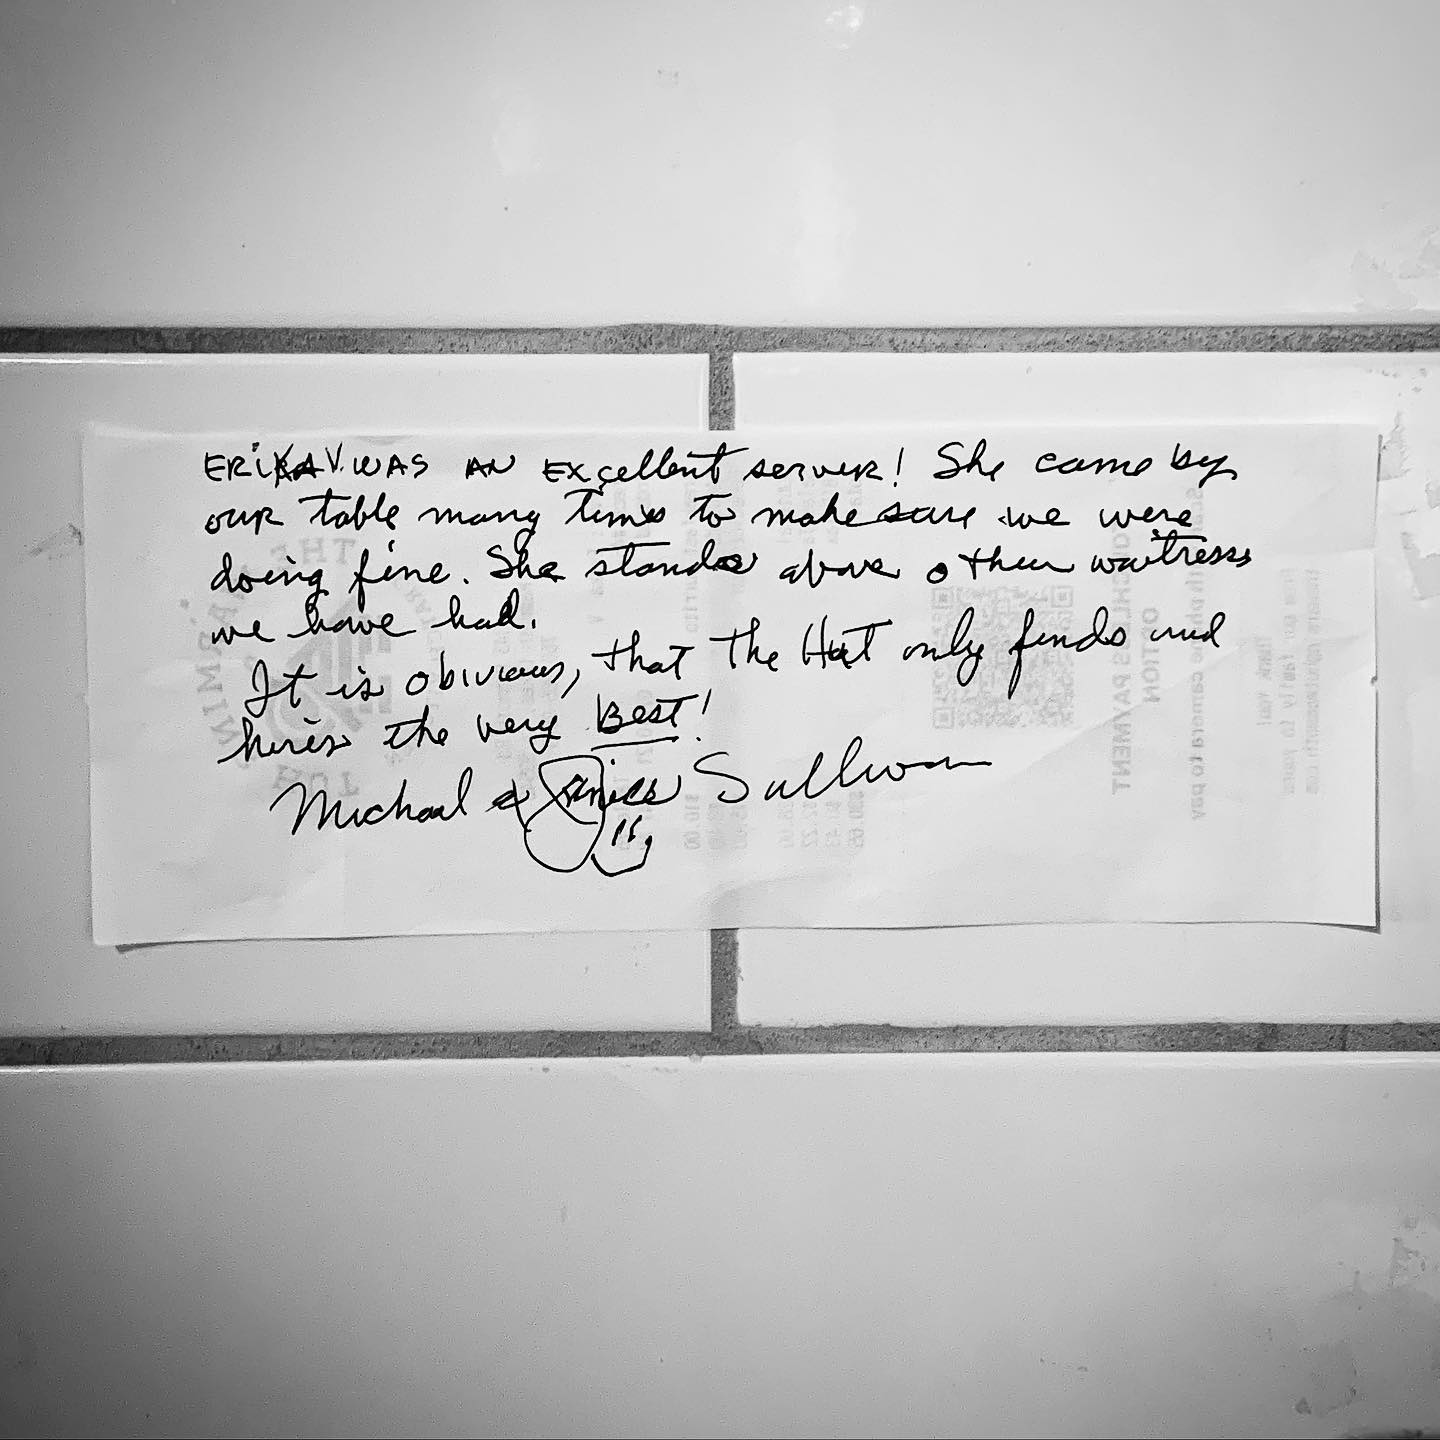 ERiKA V. WAS AN EXcellent server! She came by
our table many times to make sure we were
doing fine. She stands above other waitresses
we have had.
It is obvious, that the Hut only finds and
hires the very Best!
Michael & Janice Sullivan
TOUCHLESS PAYMENT
OPTION
camera to pay
Thank You!